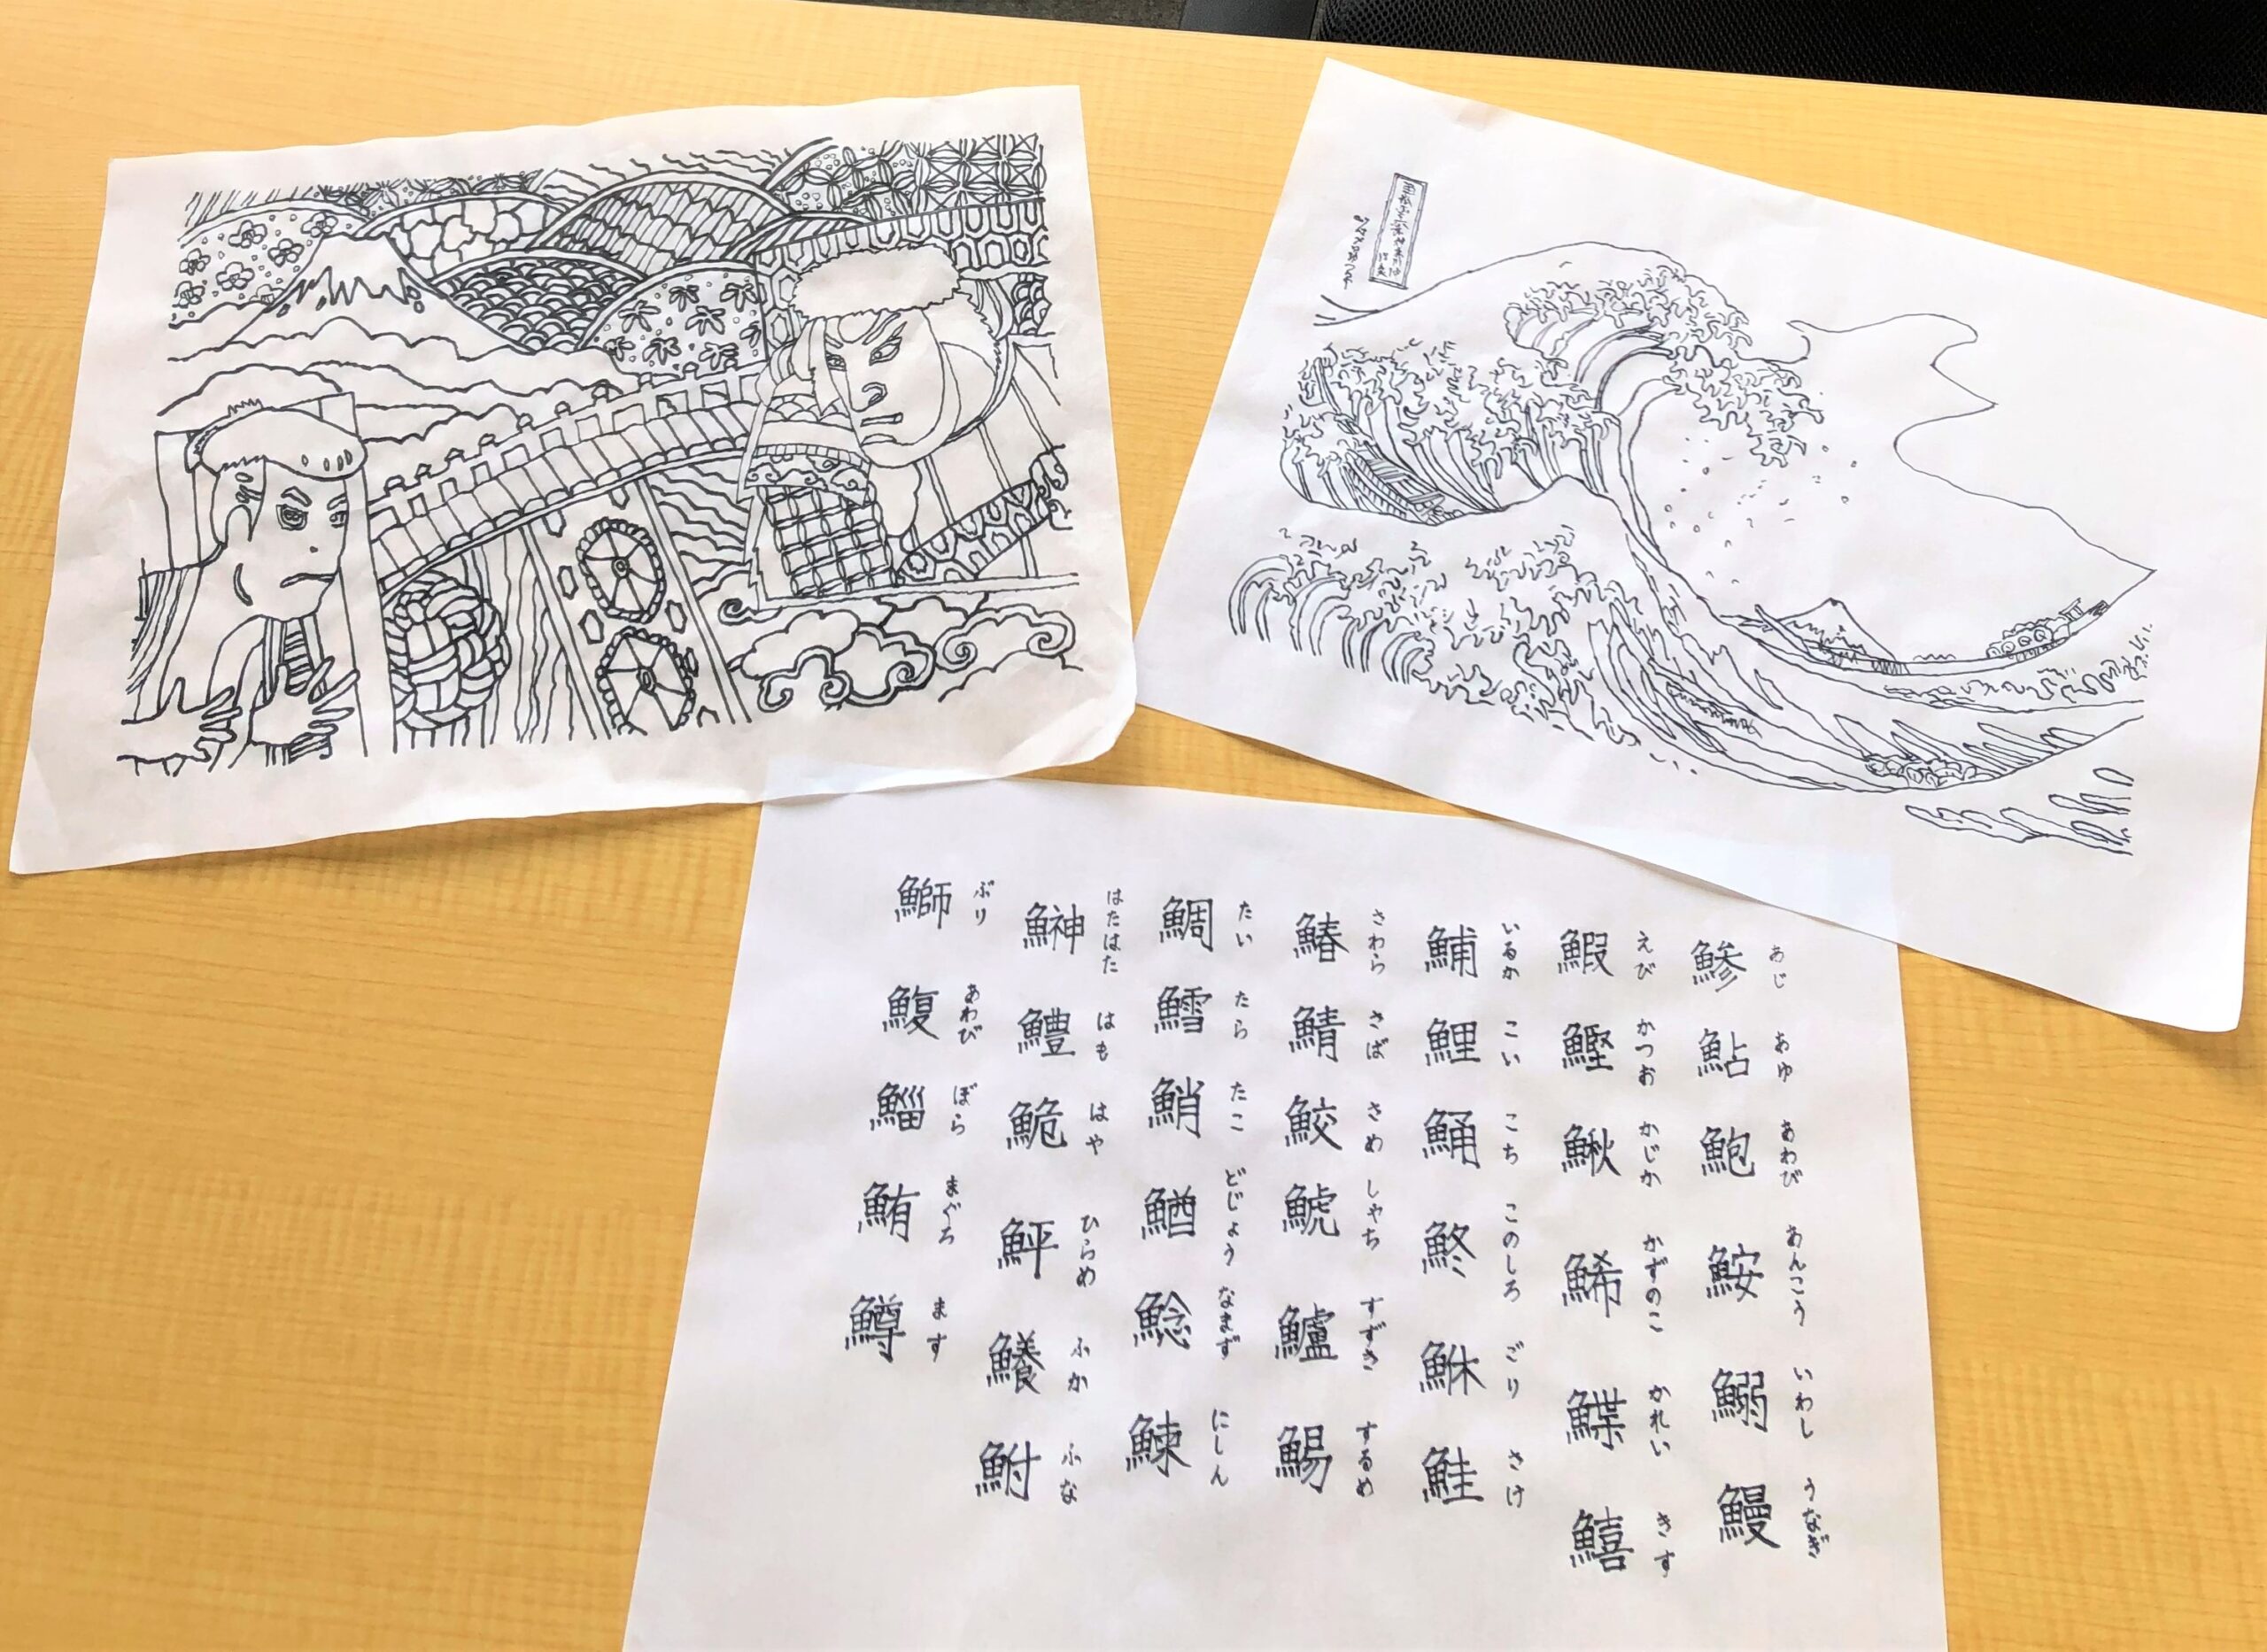 あじ あゆ あわび あんこう いわし うなぎ
鯵 鮎 鮑 鮟 鰯 鰻
えび かつお かじか かずのこ かれい きす
鰕 鰹 鰍 鯑 鰈 鱚
いるか こい こち このしろ ごり さけ
鯆 鯉 鯒 鮗 鮴 鮭
さわら さば さめ しゃち すずき するめ
鰆 鯖 鮫 鯱 鱸 鯣
たい たら たこ どじょう なまず にしん
鯛 鱈 鮹 鰌 鯰 鰊
はたはた はも はや ひらめ ふか ふな
鰰 鱧 鮠 鮃 鱶 鮒
ぶり あわび ぼら まぐろ ます
鰤 鰒 鯔 鮪 鱒